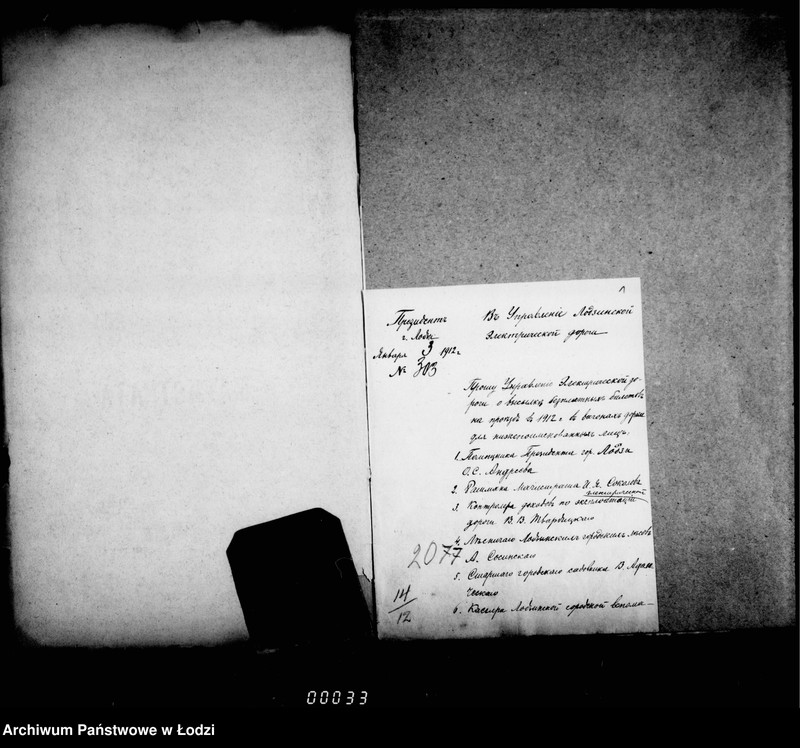 Президентъ
г. Лодзи
Января 3 1912 г.
№ 303
Въ Управленіе Лодзинской
Электрической дороги
Прошу Управленіе Электрической до-
роги о высылкѣ безплатныхъ билетовъ
на проѣздъ въ 1912 г. въ вагонахъ дороги
для нижепоименованныхъ лицъ:
1. Помощника Президента гор. Лодзи
О.С. Андреева
2. Ратмана Магистрата И.Я. Соколова
3. Контролера доходовъ по эксплоатаціи
электрической
дороги В.В. Твардицкаго
4. Лѣсничаго Лодзинскихъ городскихъ лѣсовъ
А. Сосинскаго
5. Старшаго городскаго садовника В.
ческаго
6. Кассира Лодзинской городской
2077
14/12
00033
Archiwum Państwowe w Łodzi